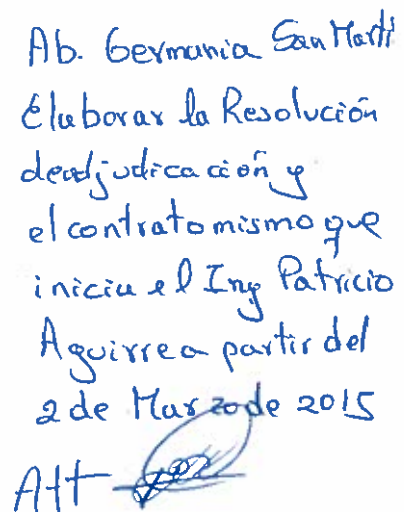 Ab. Germania San Martí
Elaborar la Resolución
de adjudicación y
el contrato mismo que
inicia el Ing Patricio
Aguirre a partir del
2 de Marzo de 2015
Att